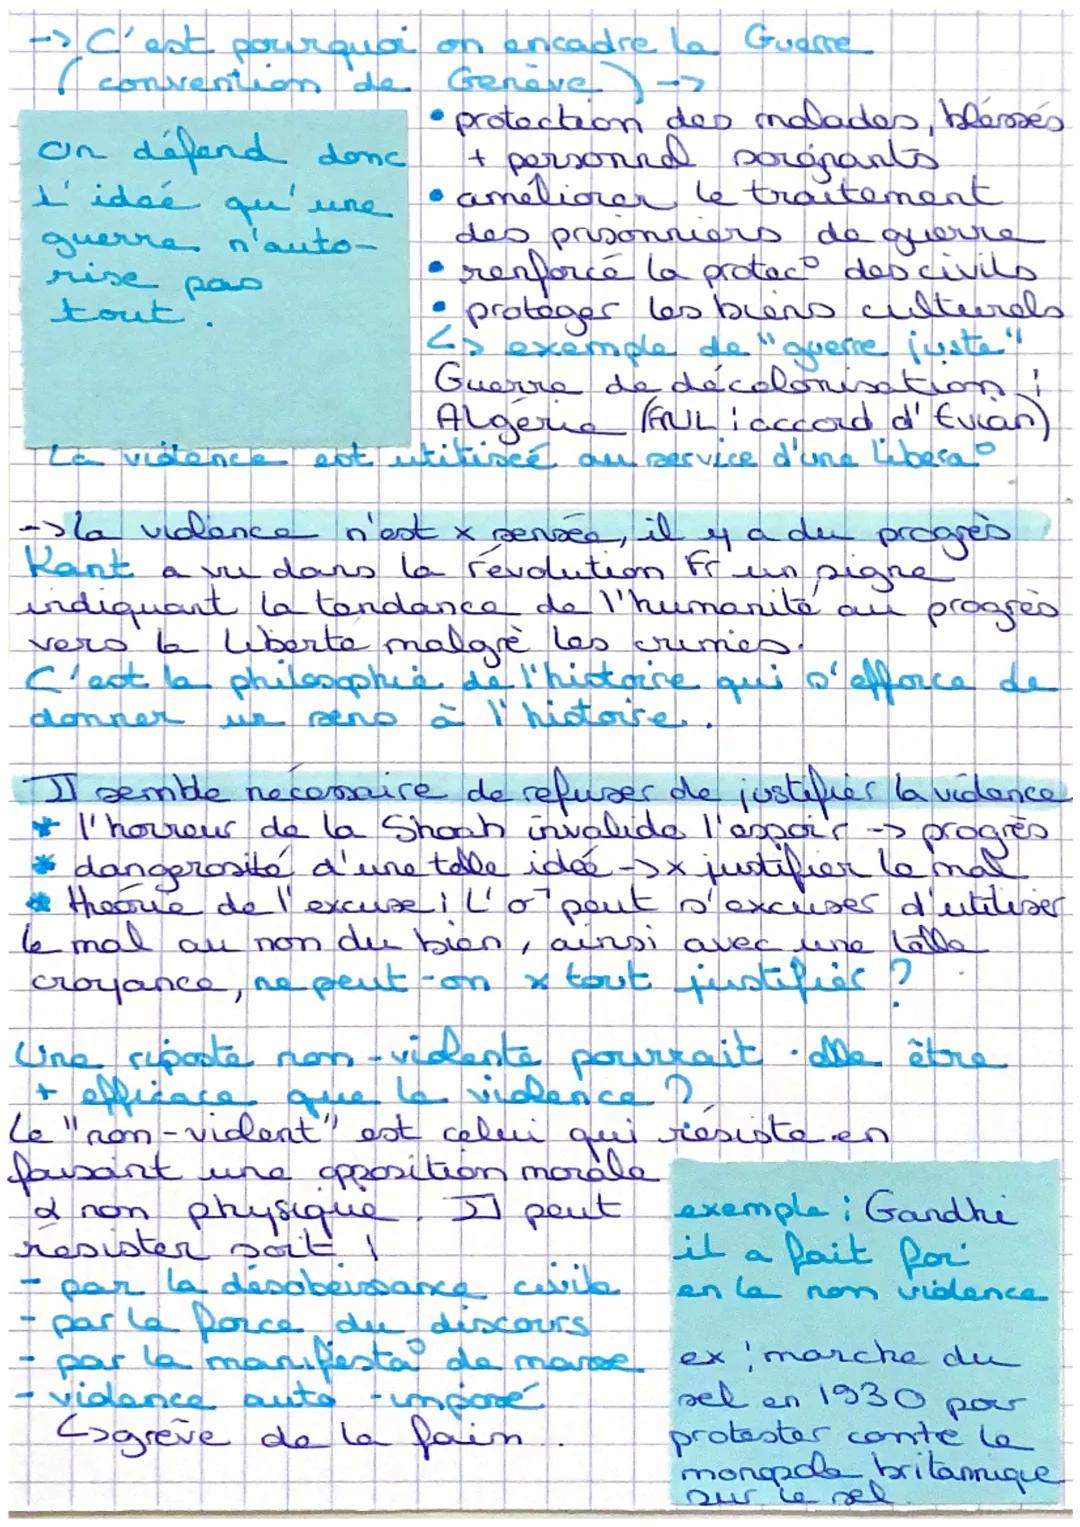 -> C'est pourquoi on encadre la Guerre
(convention de Genève) ->
On défend donc
l'ideé qu'une
guerre n'auto-
rise pas
tout.
• protection des malades, bléssés
+ personnel soignants
• améliorer le traitement
des prisonniers de guerre
• renforcé la protec° des civils
• protéger les biens culturels
↳ exemple de "guerre juste"
Guerre de décolonisation :
Algérie (FNL : accord d'Evian)
La violence est utiliseé au service d'une libera°
-> la violence n'est x sensée, il y a du progrès
Kant a vu dans la révolution Fr un signe
indiquant la tendance de l'humanité au progrès
vers la liberté malgré les crimes.
C'est la philosophie de l'histoire qui s'efforce de
donner un sens à l'histoire.
Il semble nécessaire de refuser de justifier la violence
* l'horreur de la Shoah invalide l'espoir -> progrès
* dangerosité d'une telle idée -> x justifier le mal
* théorie de l'excuse : L'o^ peut s'excuser d'utiliser
le mal au non du bien, ainsi avec une telle
croyance, ne peut-on x tout justifier ?
Une riposte non-violente pourrait-elle être
+ efficace que la violence ?
Le "non-violent" est celui qui résiste en
faisant une opposition morale
& non physique. Il peut
résister soit :
- par la désobeissance civile
- par la force du discours
- par la manifesta° de masse
- violence auto-imposé
↳ grève de la faim.
exemple : Gandhi
il a fait foi
en la non violence
ex : marche du
sel en 1930 pour
protester contre le
monopole britannique
sur le sel.